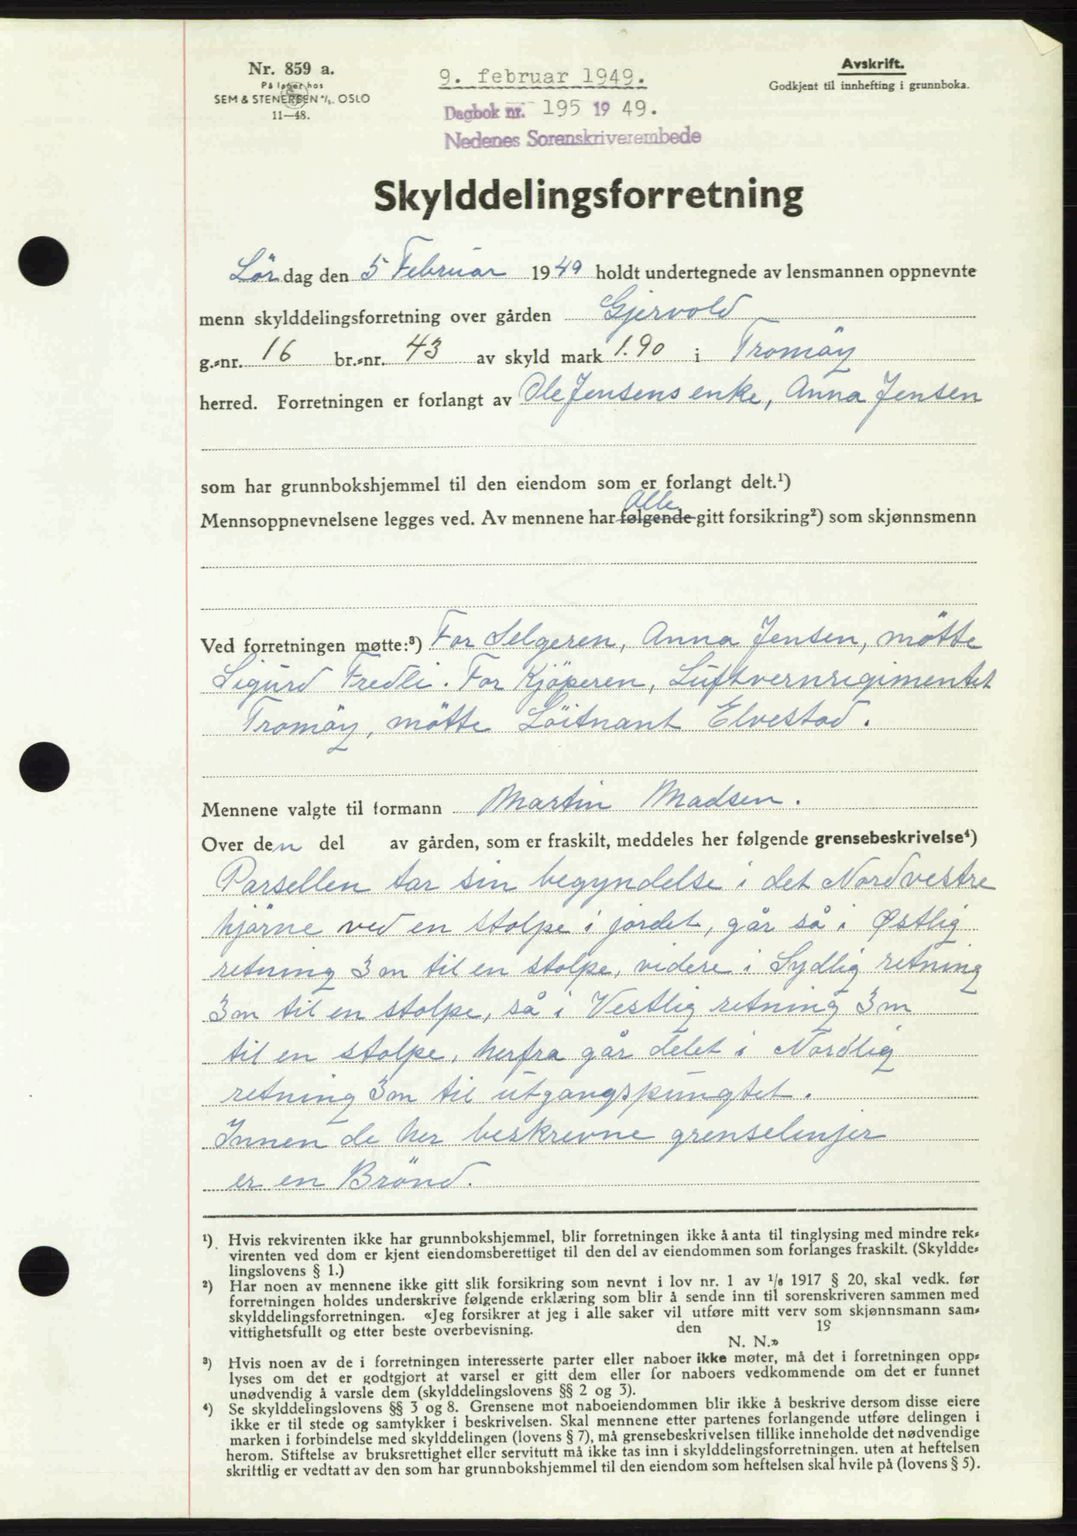 Nr. 859 a.
På lager hos
SEM & STENERSEN A/S. OSLO
11—48.
9. februar 1949.
Dagbok nr. 195 19 49.
Nedenes Sorenskriverembede
Avskrift.
Godkjent til innhefting i grunnboka.
Skylddelingsforretning
Lör dag den 5 Februar 1949 holdt undertegnede av lensmannen oppnevnte
menn skylddelingsforretning over gården Gjervold
g.-nr. 16 br.-nr. 43 av skyld mark 1.90 i Tromöy
herred. Forretningen er forlangt av Ole Jensens enke, Anna Jensen
som har grunnbokshjemmel til den eiendom som er forlangt delt.¹)
Alle
Mennsoppnevnelsene legges ved. Av mennene har følgende gitt forsikring²) som skjønnsmenn
Ved forretningen møtte:³) For Selgeren, Anna Jensen, mötte
Sigurd Fredli. For Kjöperen, Luftvernregimentet
Tromöy, mötte Löitnant Elvestad.
Mennene valgte til formann Martin Madsen.
Over den del av gården, som er fraskilt, meddeles her følgende grensebeskrivelse⁴)
Parsellen tar sin begyndelse i det Nordvestre
hjörne ved en stolpe i jordet, går så i Østlig
retning 3m til en stolpe, videre i Sydlig retning
3m til en stolpe, så i Vestlig retning 3m
til en stolpe, herfra går delet i Nordlig
retning 3m til utgangspungtet.
Innen de her beskrevne grenselinjer
er en Brönd.
¹) Hvis rekvirenten ikke har grunnbokshjemmel, blir forretningen ikke å anta til tinglysing med mindre rek-
virenten ved dom er kjent eiendomsberettiget til den del av eiendommen som forlanges fraskilt. (Skyldde-
lingslovens § 1.)
²) Har noen av mennene ikke gitt slik forsikring som nevnt i lov nr. 1 av 1/6 1917 § 20, skal vedk. før
forretningen holdes underskrive følgende erklæring som blir å sende inn til sorenskriveren sammen med
skylddelingsforretningen. «Jeg forsikrer at jeg i alle saker vil utføre mitt verv som skjønnsmann sam-
vittighetsfullt og etter beste overbevisning. den 19
N. N.»
³) Hvis noen av de i forretningen interesserte parter eller naboer ikke møter, må det i forretningen opp-
lyses om det er godtgjort at varsel er gitt dem eller for naboers vedkommende om det er funnet
unødvendig å varsle dem (skylddelingslovens §§ 2 og 3).
⁴) Se skylddelingslovens §§ 3 og 8. Grensene mot naboeiendommen blir ikke å beskrive dersom disse eiere
ikke er til stede og samtykker i beskrivelsen. Skal mennene etter partenes forlangende utføre delingen i
marken i forbindelse med skylddelingen (lovens § 7), må grensebeskrivelsen tillike inneholde det nødvendige
herom. Stiftelse av bruksrettighet eller servitutt må ikke tas inn i skylddelingsforretningen. uten at heftelsen
skriftlig er vedtatt av den som har grunnbokshjemmel til den eiendom som heftelsen skal hvile på (lovens § 5).